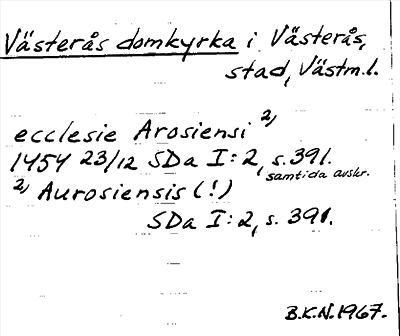 Västerås domkyrka i Västerås,
stad, Västm.l.
ecclesie Arosiensi 2)
1454 23/12 SDa I:2, s. 391.
samtida avskr.
2) Aurosiensis (!)
SDa I:2, s. 391.
B.K.N. 1967.